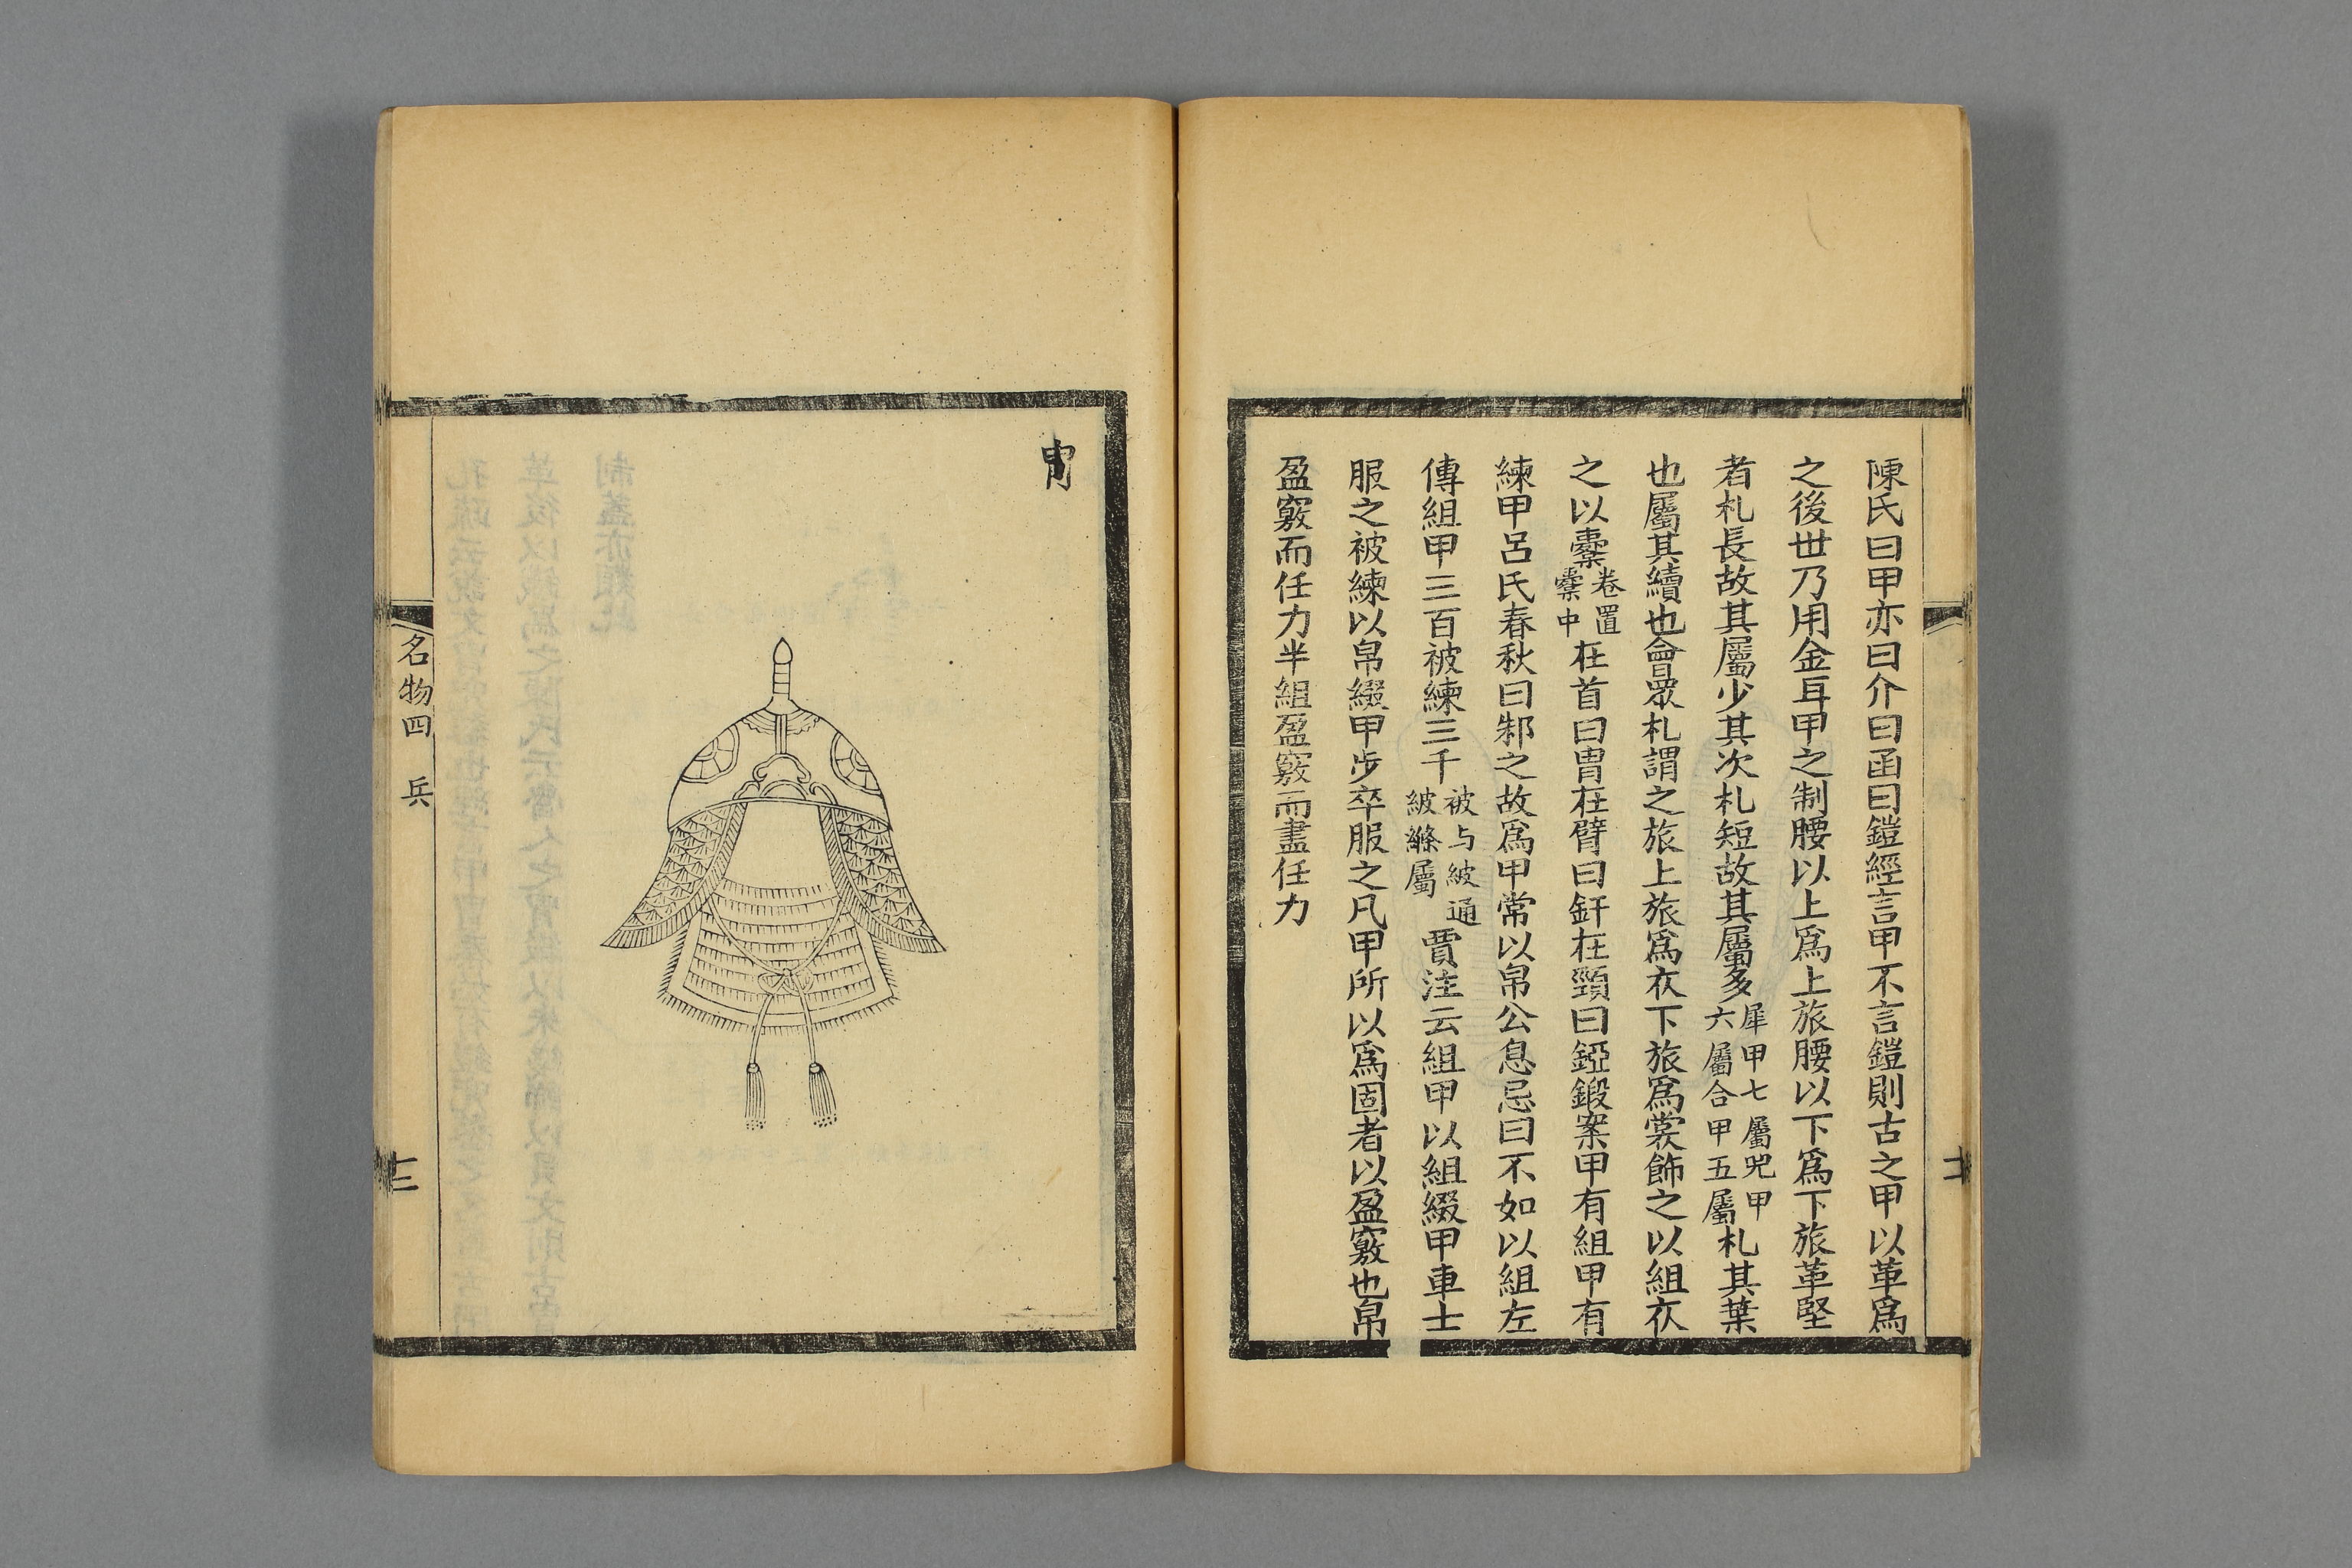 陳氏曰甲亦曰介曰函曰鎧經言甲不言鎧則古之甲以革爲
之後世乃用金耳甲之制腰以上爲上旅腰以下爲下旅革堅
者札長故其屬少其次札短故其屬多犀甲七屬兕甲六屬合甲五屬札其葉
也屬其續也會眾札謂之旅上旅爲衣下旅爲裳飾之以組衣
之以櫜卷置櫜中在首曰冑在臂曰釬在頸曰錏鍜案甲有組甲有
練甲呂氏春秋曰邾之故爲甲常以帛公息忌曰不如以組左
傳組甲三百被練三千被与紴通紴絛屬賈注云組甲以組綴甲車士
服之被練以帛綴甲步卒服之凡甲所以爲固者以盈竅也帛
盈竅而任力半組盈竅而盡任力
冑
名物四 兵
十三